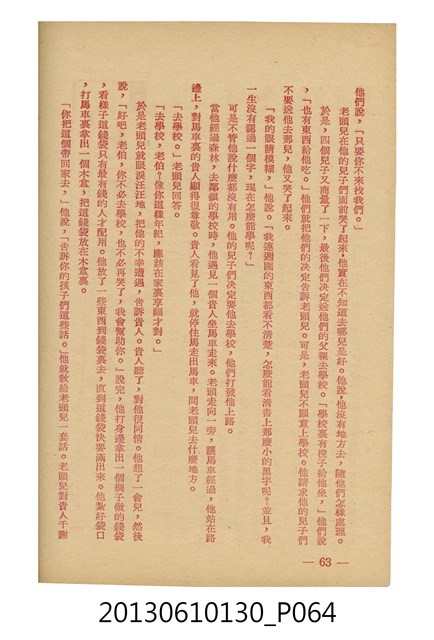 他們說，「只要你不來找我們。」
老頭兒在他的兒子們面前哭了起來，他實在不知道去哪兒是好。他說，他沒有地方去，隨他們怎樣處理。
於是，四個兒子又商量了一下，最後他們決定送他們的父親去學校。「學校裏有櫈子給他坐，」他們說
，「也有東西給他吃。」他們就把他們的決定告訴老頭兒。可是，老頭兒不願意上學校。他請求他的兒子們
不要送他去那兒，他又哭了起來。
「我的眼睛模糊，」他說。「我連週圍的東西都看不清楚，怎麼能看清書上那麼小的黑字呢？並且，我
一生沒有認過一個字，現在怎麼能學呢？」
可是不管他說什麼都沒有用。他的兒子們決定要他去學校，他們打發他上路。
當他經過森林，去鄰鎮的學校時，他遇見一個貴人坐馬車走來。老頭走向一旁，讓馬車經過，他站在路
邊上，對馬車裏的貴人顯得很尊敬。貴人看見了他，就停住馬走出馬車，問老頭兒去什麼地方。
「去學校。」老頭兒回答。
「去學校，老伯？像你這樣年紀，應該在家裏享福才對。」
於是老頭兒就眼淚汪汪地，把他的不幸遭遇，告訴貴人。貴人聽了，對他很同情。他想了一會兒，然後
說，「好吧，老伯，你不必去學校，也不必再哭了，我會幫助你。」說完，他打身邊拿出一個綢子做的錢袋
，看樣子這錢袋只有最有錢的人才配用。他放了一些東西到錢袋裏去，直到這錢袋快要滿出來。他紮好袋口
，打馬車裏拿出一個木盒，把這錢袋放在木盒裏。
「你把這個帶回家去，」他說，「告訴你的孩子們這些話。」他就教給老頭兒一套話。老頭兒對貴人千謝
— 63 —
20130610130_P064